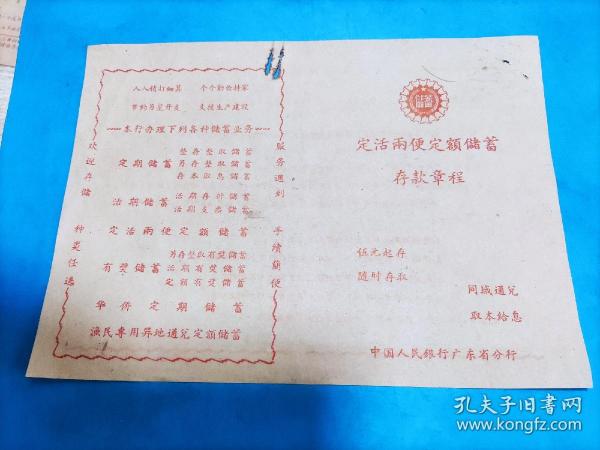 人人精打細算 个个勤儉持家
节約另星开支 支援生产建設
本行办理下列各种儲蓄业务
定期儲蓄
整存整取儲蓄
另存整取儲蓄
存本取息儲蓄
活期儲蓄
活期存折儲蓄
活期支票儲蓄
定活兩便定額儲蓄
有奬儲蓄
另存整取有奬儲蓄
活期有奬儲蓄
定額有奬儲蓄
华侨定期儲蓄
漁民專用异地通兌定額儲蓄
欢迎存儲
种类任选
服务週到
手續簡便
儲蓄
定活兩便定額儲蓄
存款章程
伍元起存
随时存取
同城通兌
取本給息
中国人民銀行广东省分行
孔夫子旧书网
www.kongfz.com